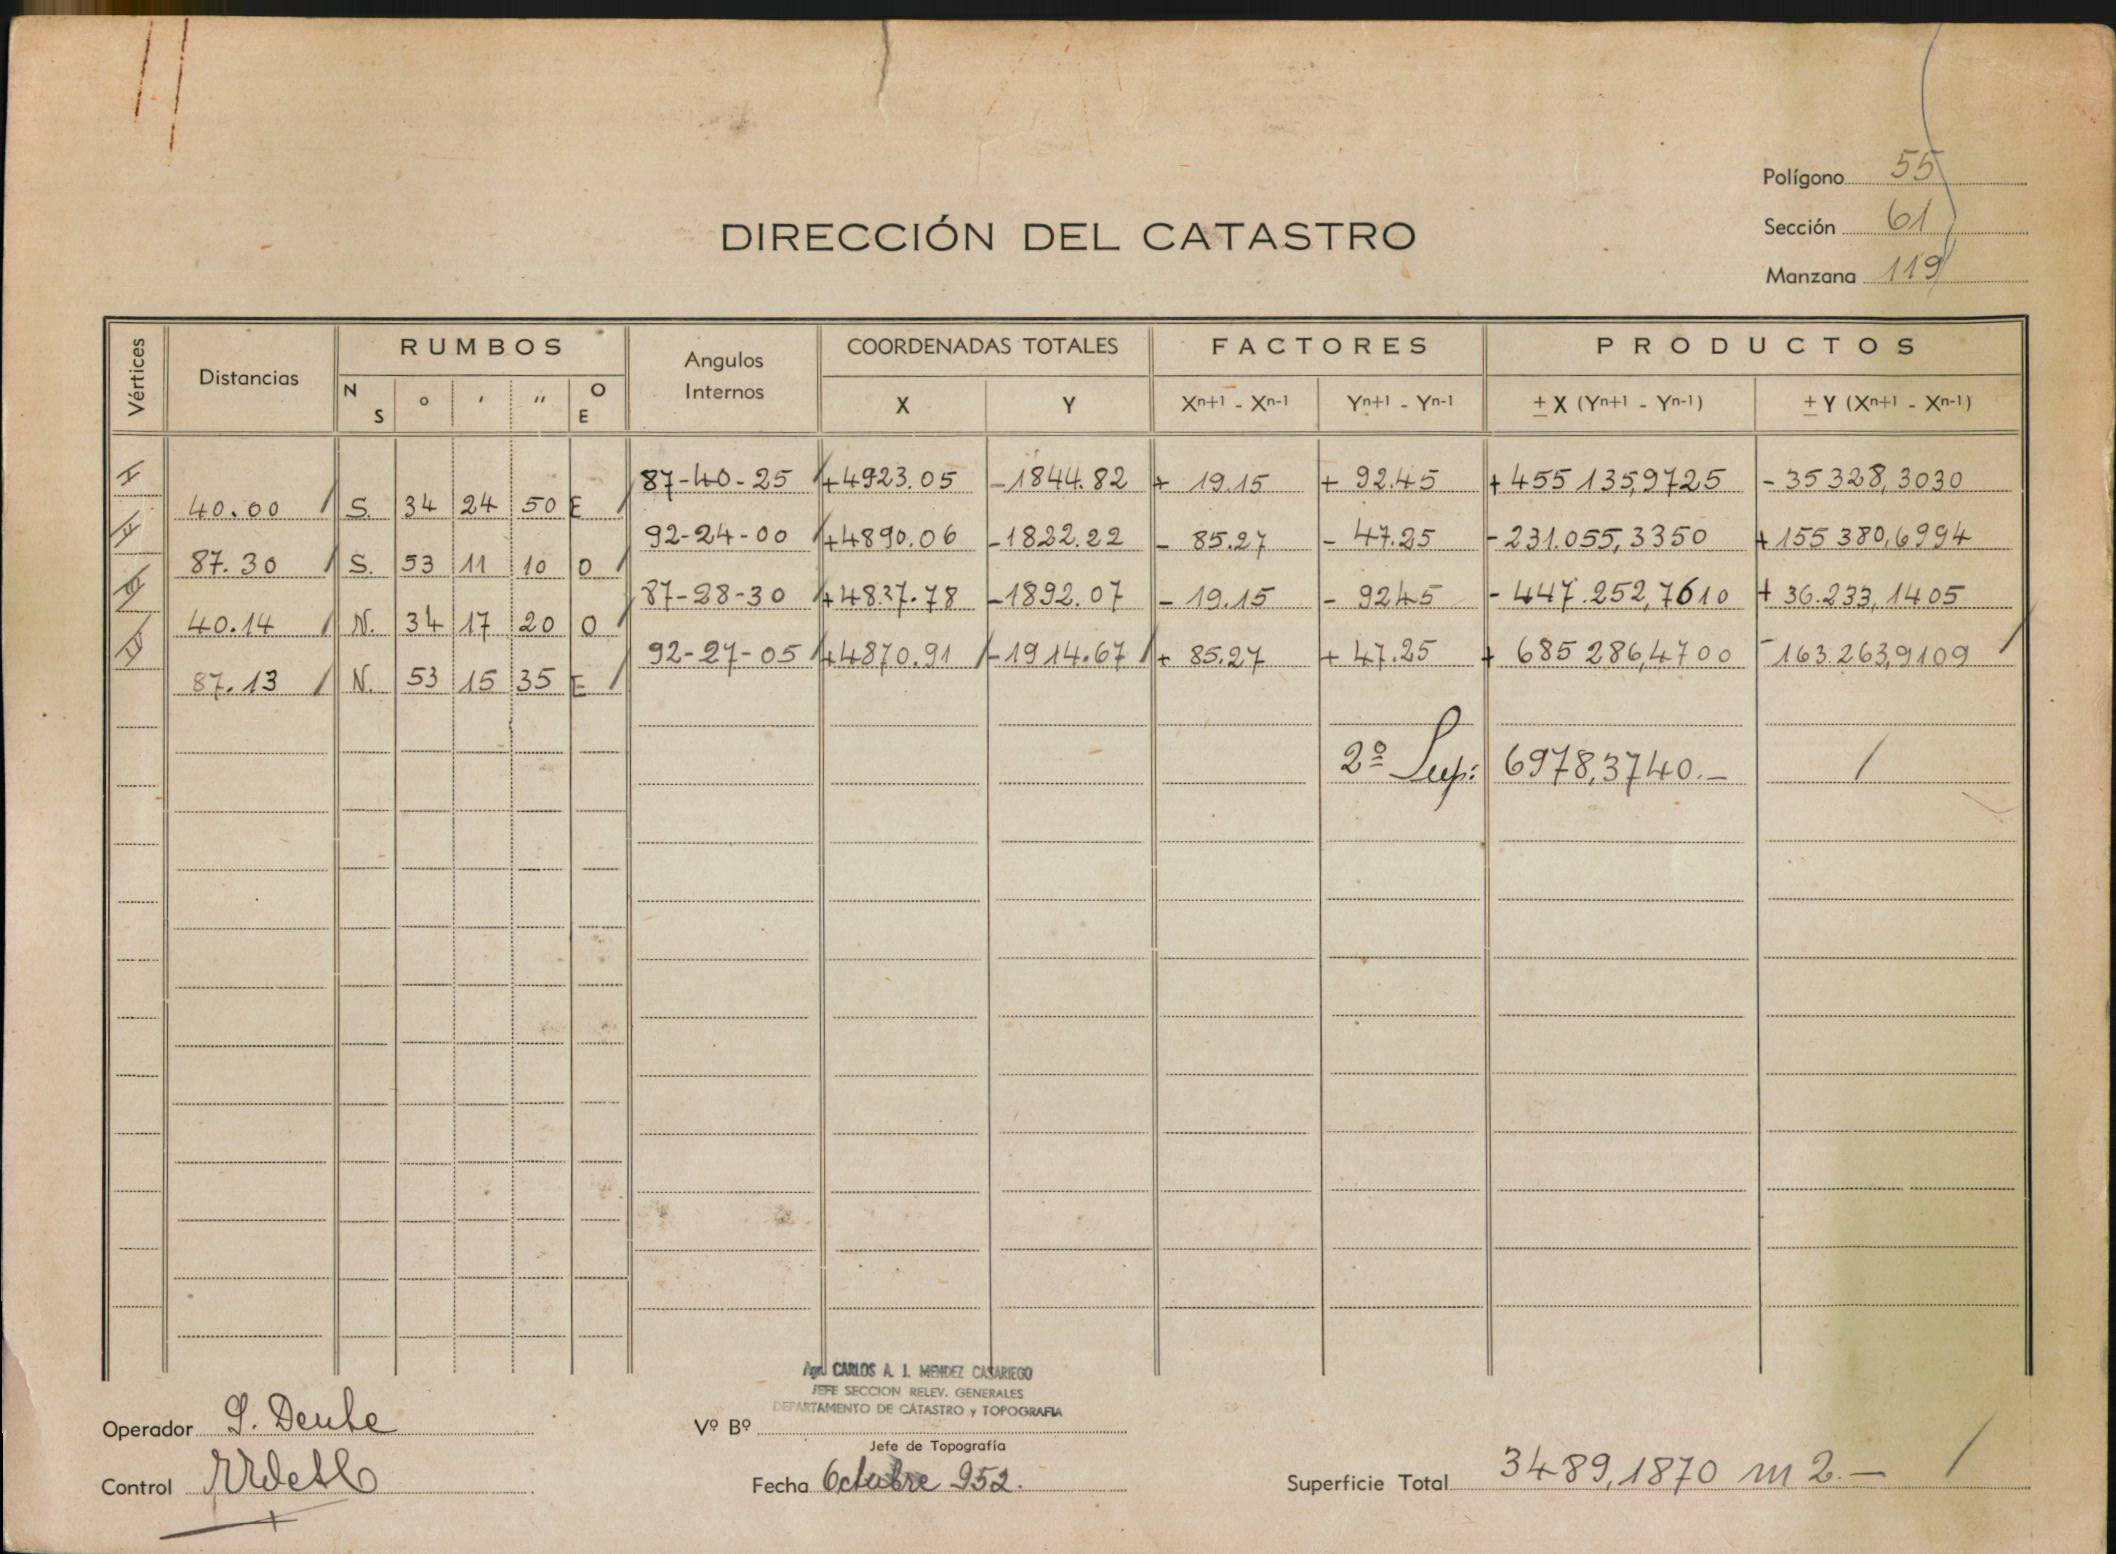 Polígono 55
Sección 61
Manzana 119
DIRECCIÓN DEL CATASTRO
Vértices Distancias RUMBOS Angulos Internos COORDENADAS TOTALES FACTORES PRODUCTOS
N S ° ′ ″ O E X Y Xn+1 - Xn-1 Yn+1 - Yn-1 ± X (Yn+1 - Yn-1) ± Y (Xn+1 - Xn-1)
I 87-40-25 +4923.05 -1844.82 + 19.15 + 92.45 +455 135,9725 - 35 328,3030
40.00 S. 34 24 50 E
II 92-24-00 +4890.06 -1822.22 - 85.27 - 47.25 -231.055,3350 +155 380,6994
87.30 S. 53 11 10 O
III 87-28-30 +4837.78 -1892.07 - 19.15 - 9245 -447.252,7610 + 36.233,1405
40.14 N. 34 17 20 O
IV 92-27-05 +4870.91 -1914.67 + 85.27 + 47.25 + 685 286,4700 -163.263,9109
87.13 N. 53 15 35 E
2º Sup: 6978,3740.-
Agr. CARLOS A. J. MENDEZ CASARIEGO
JEFE SECCION RELEV. GENERALES
DEPARTAMENTO DE CATASTRO y TOPOGRAFIA
Operador Vº Bº
Jefe de Topografía
Control Fecha Octubre 952. Superficie Total 3489,1870 m2.-